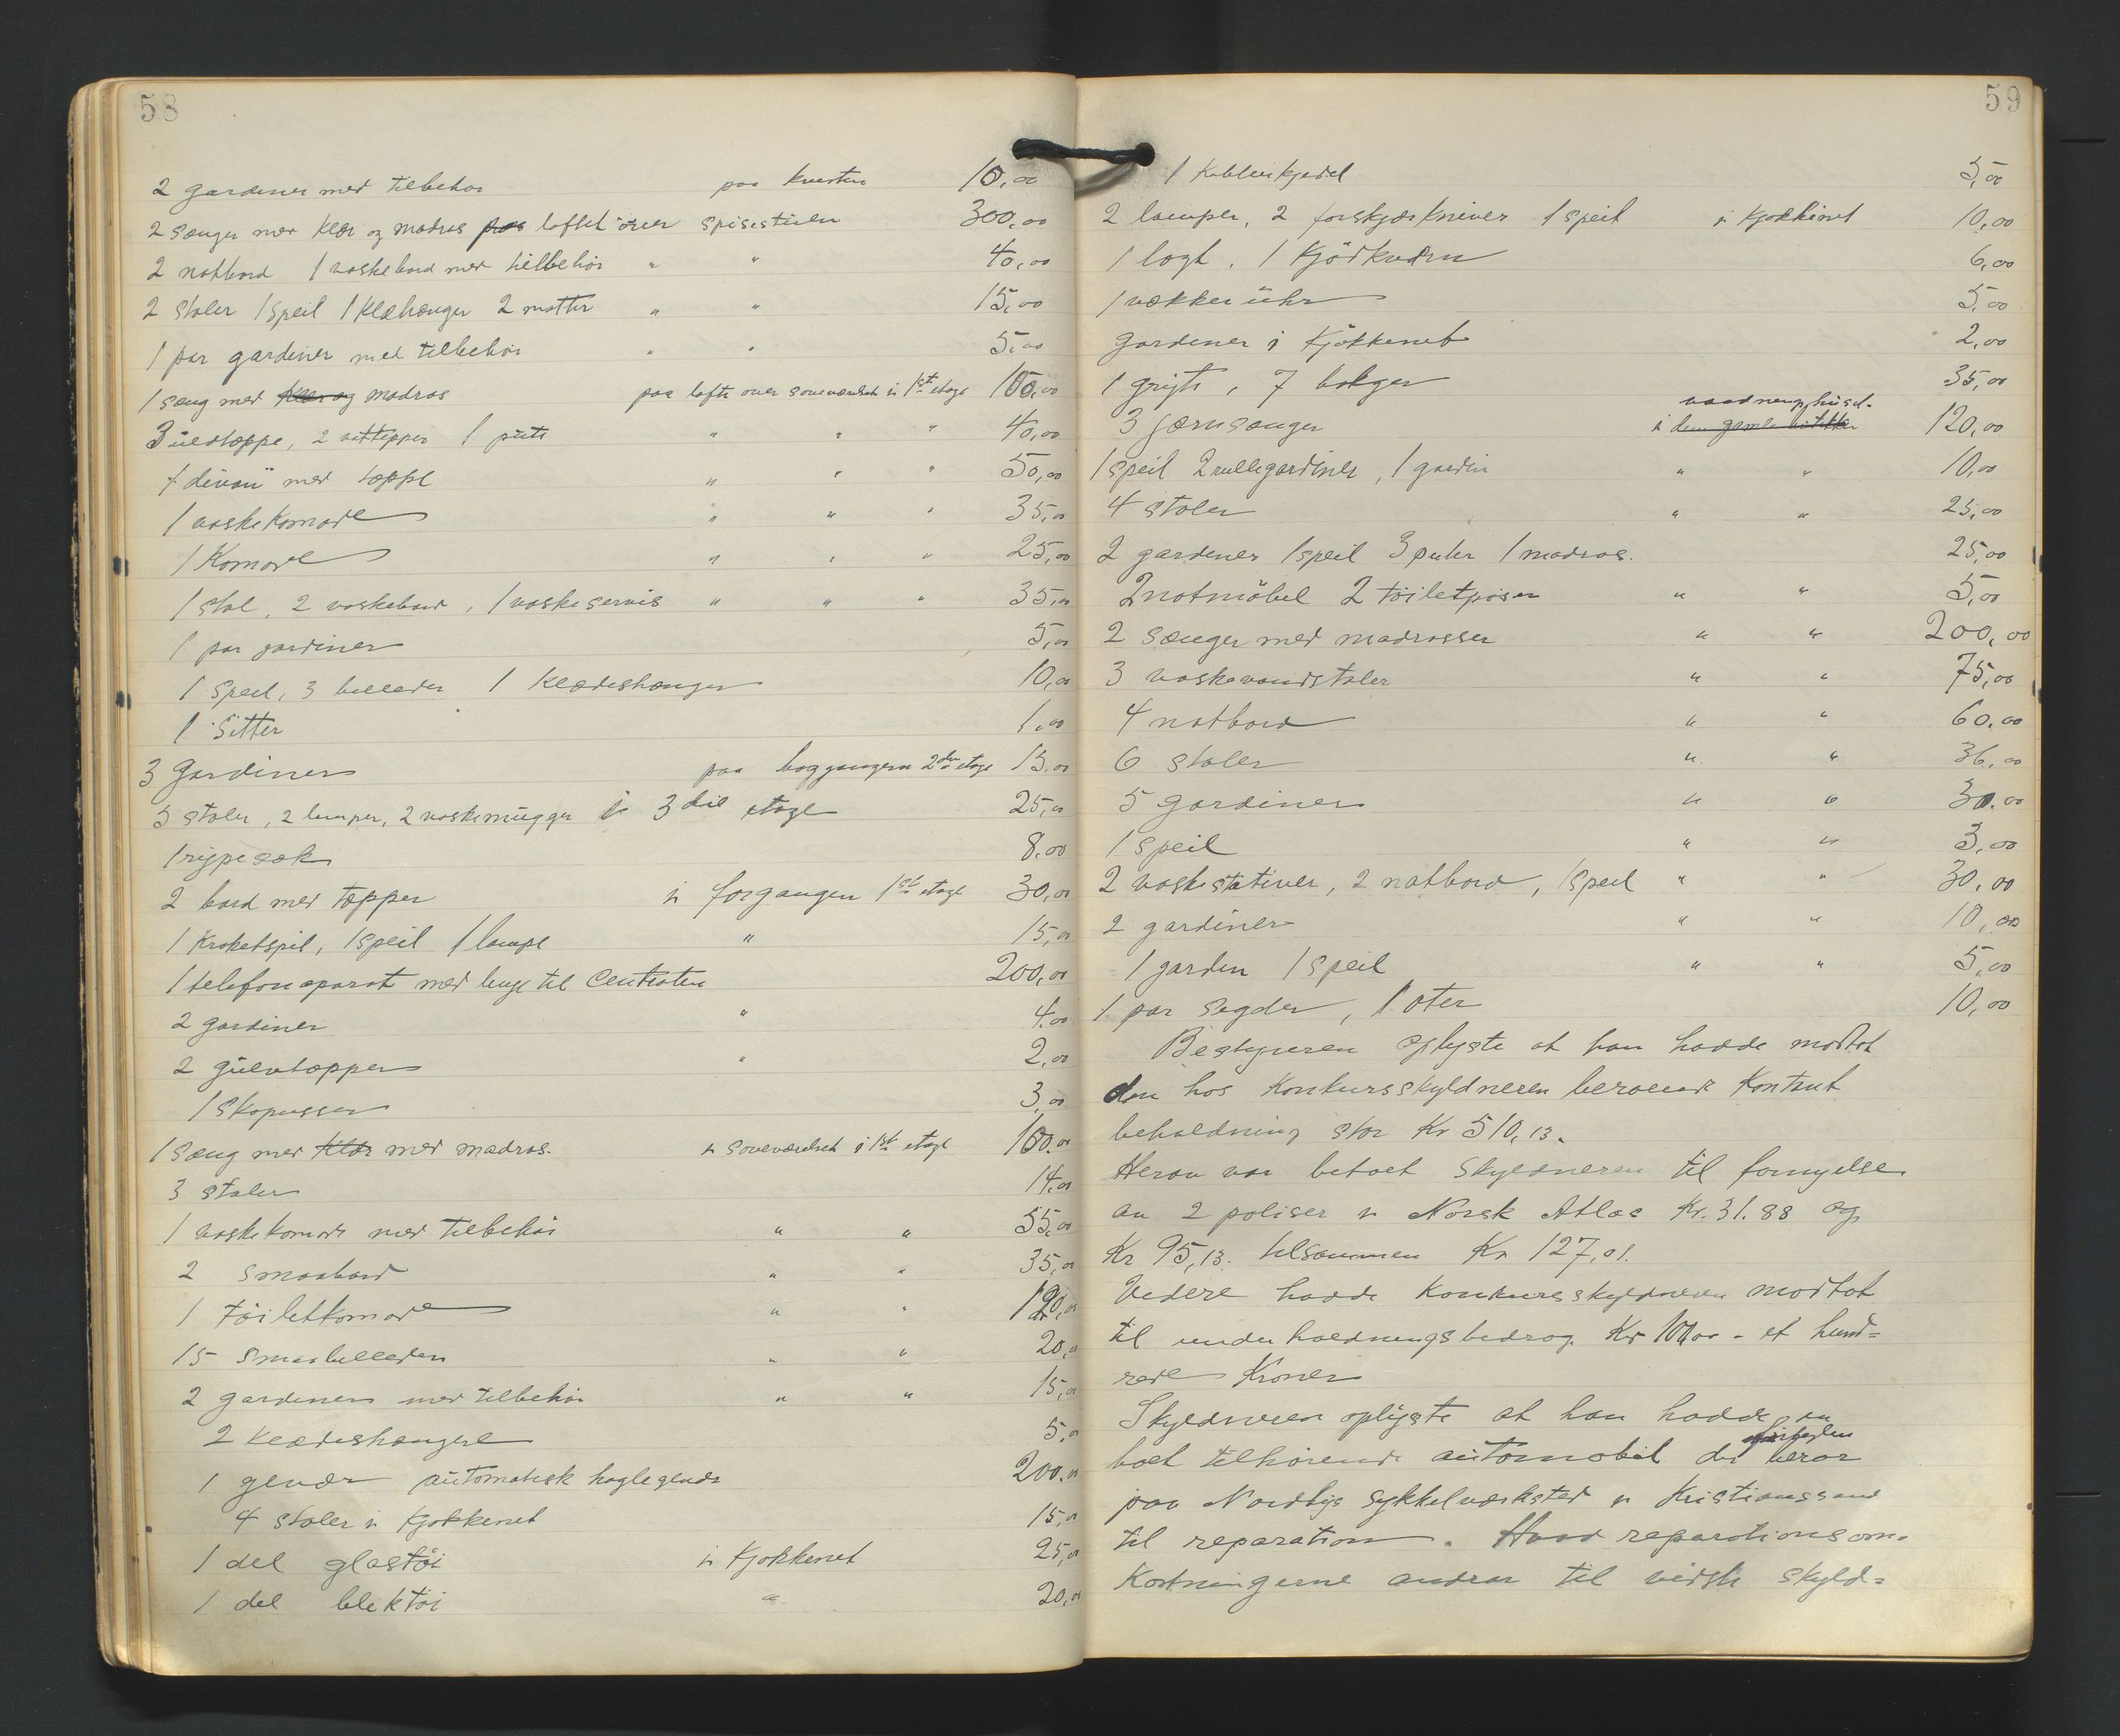 58
2 gardiner med tilbehør paa kvisten 10,00
2 senger med klær og madras paa loftet över spisestuen 300,00
2 natbord 1 vaskebord med tilbehør " " 40,00
2 stoler 1 speil 1 klæhænger 2 matter " " 15,00
1 par gardiner med tilbehør " " 5,00
1 seng med klær og madras paa loft over soveværelset i 1st etage 100,00
3 uldtæppe, 2 vattepper 1 püte " " " 40,00
1 divan med tæppe " " " 50,00
1 vaskekomode " " " 35,00
1 Komode " " " 25,00
1 stol, 2 vaskebord, 1 vaskeservis " " " 35,00
1 par gardiner 5,00
1 speil, 3 billeder 1 klædeshænger 10,00
1 Sitter 1,00
3 Gardiner paa baggangen 2den etage 15,00
5 stoler, 2 lamper, 2 vaskemügger i 3die etage 25,00
1 rypesæk 8,00
2 bord med tæpper i forgangen 1st etage 30,00
1 Kroketspil, 1 speil 1 lampe " 15,00
1 telefonaparat med linje til Centralen 200,00
2 gardiner " 4,00
2 gülvtæpper " 2,00
1 skopusser 3,00
1 Sæng med klær med madras. i soveværelset i 1st etage 100,00
3 stoler 14,00
1 vaskekomode med tilbehør " " 55,00
2 smaabord " " 35,00
1 töiletkomode " " 120,00
15 smaabilleder " " 20,00
2 gardiner med tilbehør " " 15,00
2 klædeshængere 5,00
1 gevær automatisk haglegevær 200,00
4 stoler i kjøkkenet 15,00
1 del glastöi i Kjøkkenet 25,00
1 del bliktöi " 20,00
59
1 Kobberkjedel 5,00
2 lamper, 2 forskjærkniver 1 speil i kjøkkenet 10,00
1 løgt, 1 Kjödkværn 6,00
1 vækkerühr 5,00
gardiner i Kjökkenet 2,00
1 gryte, 7 bolger 35,00
vaadningshuset
3 jærnsænger i den gamle 120,00
1 speil 2 rullegardiner, 1 gardin " " 10,00
4 stoler " " 25,00
2 gardiner 1 speil 3 puter 1 madras. 25,00
2 natmöbel 2 töiletposer " " 5,00
2 sænger med madrasser " " 200,00
3 vaskevandstoler " " 75,00
4 natbord " " 60,00
6 stoler " " 36,00
5 gardiner " " 30,00
1 speil " " 3,00
2 vaskestativer, 2 natbord, 1 speil " " 30,00
2 gardiner " " 10,00
1 gardin 1 speil " " 5,00
1 par segder, 1 oter 10,00
Bestyreren oplyste at han hadde mottat
den hos Konkursskyldneren beroende Kontant
beholdning stor Kr 510,13.
Herav var betalt skyldneren til fornyelse
av 2 poliser i Norsk Atlas Kr. 31.88 og
Kr 95,13. tilsammen Kr 127,01.
Videre hadde Konkursskyldneren mottat
til underholdningsbidrag Kr 100,00 - et hund=
rede Kroner
Skyldneren oplyste at han hadde en
boet tilhørende automobil der beror
paa Nordbys sykkelværksted i Kristianssand
til reparation. Hvad reparationsom=
kostningerne andrar til vidste skyld=